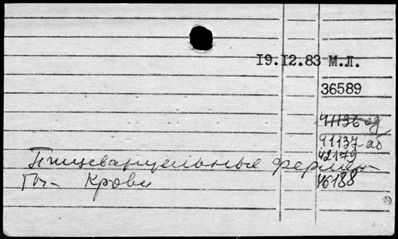 19.12.83 М.Л.
36589
41136-ад
41137-ад
42179
46188
Пищеварительные фермен-
ты - Крови